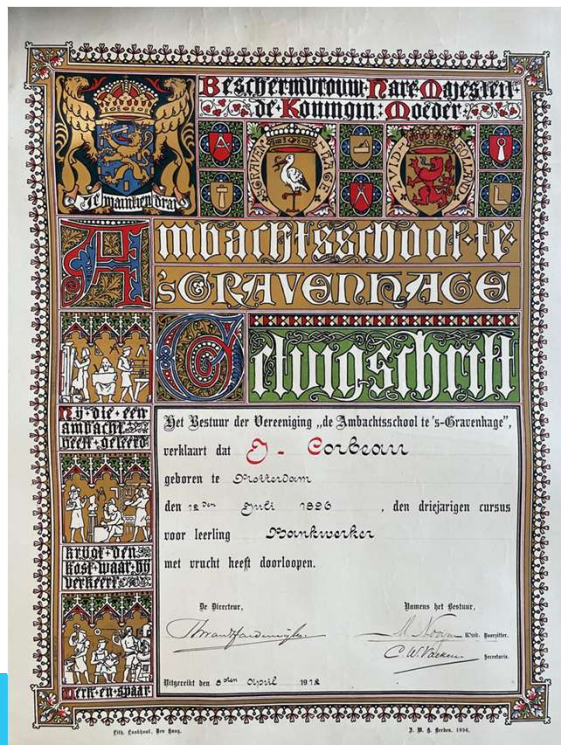 Beschermvrouw: Hare Majesteit
de Koningin: Moeder:
'SGRAVEN HAGE
ZUID HOLLAND
Je maintiendrai
Ambachtsschool·te·
'sGRAVENHAGE
Getuigschrift
Hy·die·een
ambacht
heeft·geleerd
krygt·den
kost·waar·hy
verkeert
Werk·en·spaar
Het Bestuur der Vereeniging „de Ambachtsschool te 's-Gravenhage",
verklaart dat J - Corbeau
geboren te Rotterdam
den 12den Juli 1896, den driejarigen cursus
voor leerling Bankwerker
met vrucht heeft doorloopen.
De Directeur,
Namens het Bestuur,
Voorzitter.
Secretaris.
Uitgereikt den 5den April 1912
Lith. Lankhout, Den Haag.